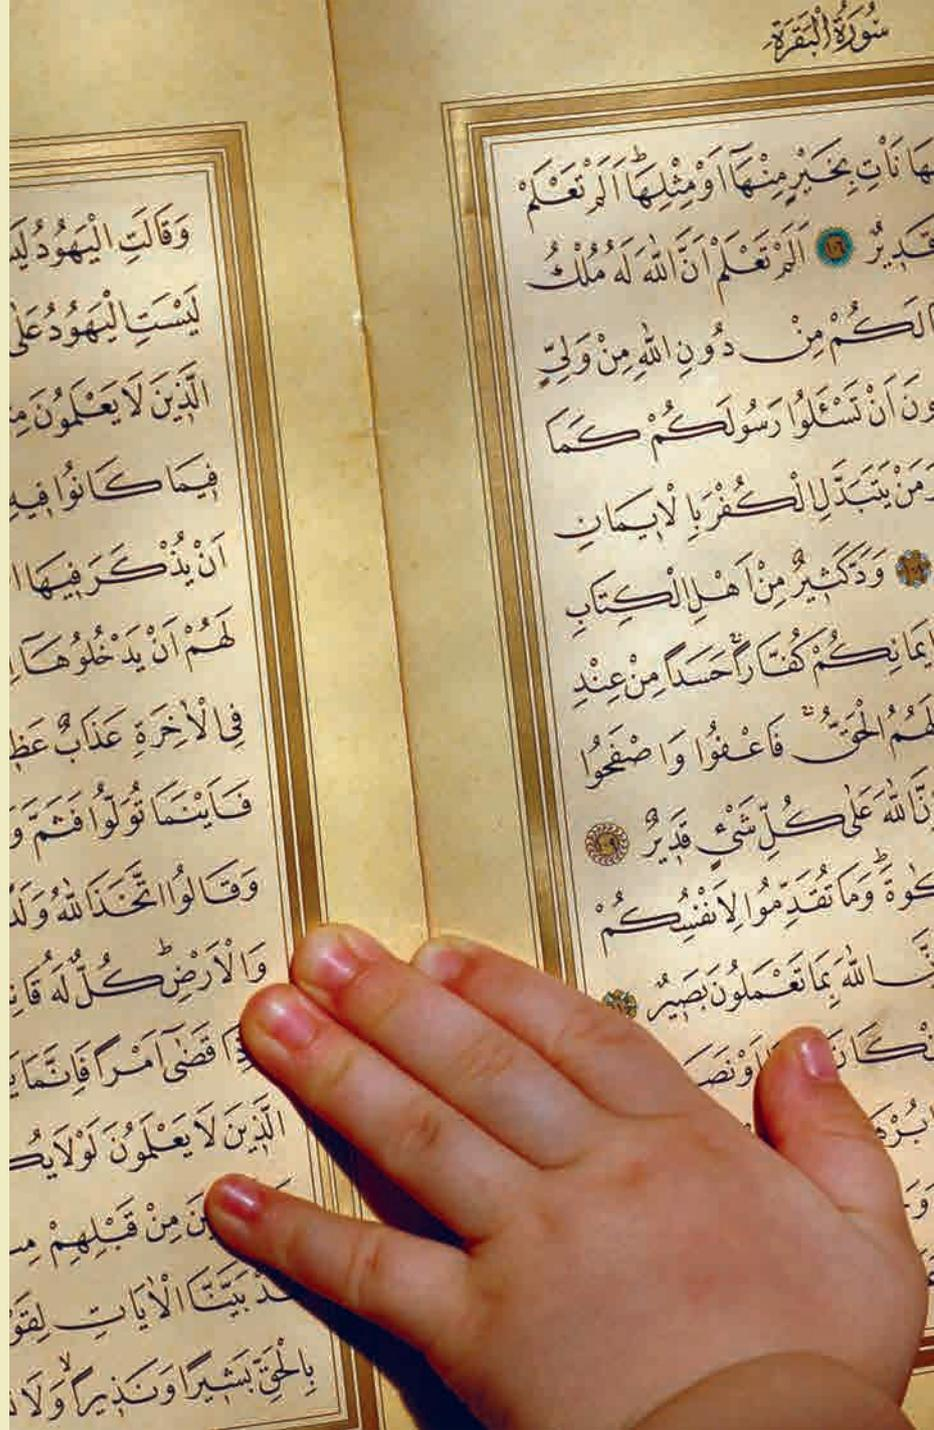 سُورَةُ الْبَقَرَةِ
نَأْتِ بِخَيْرٍ مِنْهَٓا اَوْ مِثْلِهَاۜ اَلَمْ تَعْلَمْ
قَد۪يرٌ ﴿١٠٦﴾ اَلَمْ تَعْلَمْ اَنَّ اللّٰهَ لَهُ مُلْكُ
لَكُمْ مِنْ دُونِ اللّٰهِ مِنْ وَلِيٍّ
اَنْ تَسْـَٔلُوا رَسُولَكُمْ كَمَا
وَمَنْ يَتَبَدَّلِ الْكُفْرَ بِالْا۪يمَانِ
﴿١٠٨﴾ وَدَّ كَث۪يرٌ مِنْ اَهْلِ الْكِتَابِ
ا۪يمَانِكُمْ كُفَّاراًۚ حَسَداً مِنْ عِنْدِ
لَهُمُ الْحَقُّۚ فَاعْفُوا وَاصْفَحُوا
اِنَّ اللّٰهَ عَلٰى كُلِّ شَيْءٍ قَد۪يرٌ ﴿١٠٩﴾
وَمَا تُقَدِّمُوا لِاَنْفُسِكُمْ
اللّٰهَ بِمَا تَعْمَلُونَ بَص۪يرٌ
كَانَ
وَقَالَتِ الْيَهُودُ
لَيْسَتِ الْيَهُودُ عَلٰى
الَّذ۪ينَ لَا يَعْلَمُونَ
ف۪يمَا كَانُوا ف۪يهِ
اَنْ يُذْكَرَ ف۪يهَا
لَهُمْ اَنْ يَدْخُلُوهَٓا
فِي الْاٰخِرَةِ عَذَابٌ
فَاَيْنَمَا تُوَلُّوا فَثَمَّ
وَقَالُوا اتَّخَذَ اللّٰهُ
وَالْاَرْضِۜ كُلٌّ لَهُ
قَضٰٓى اَمْراً فَاِنَّمَا
الَّذ۪ينَ لَا يَعْلَمُونَ لَوْلَا
مِنْ قَبْلِهِمْ
بَيَّنَّا الْاٰيَاتِ
بِالْحَقِّ بَش۪يراً وَنَذ۪يراًۙ وَلَا